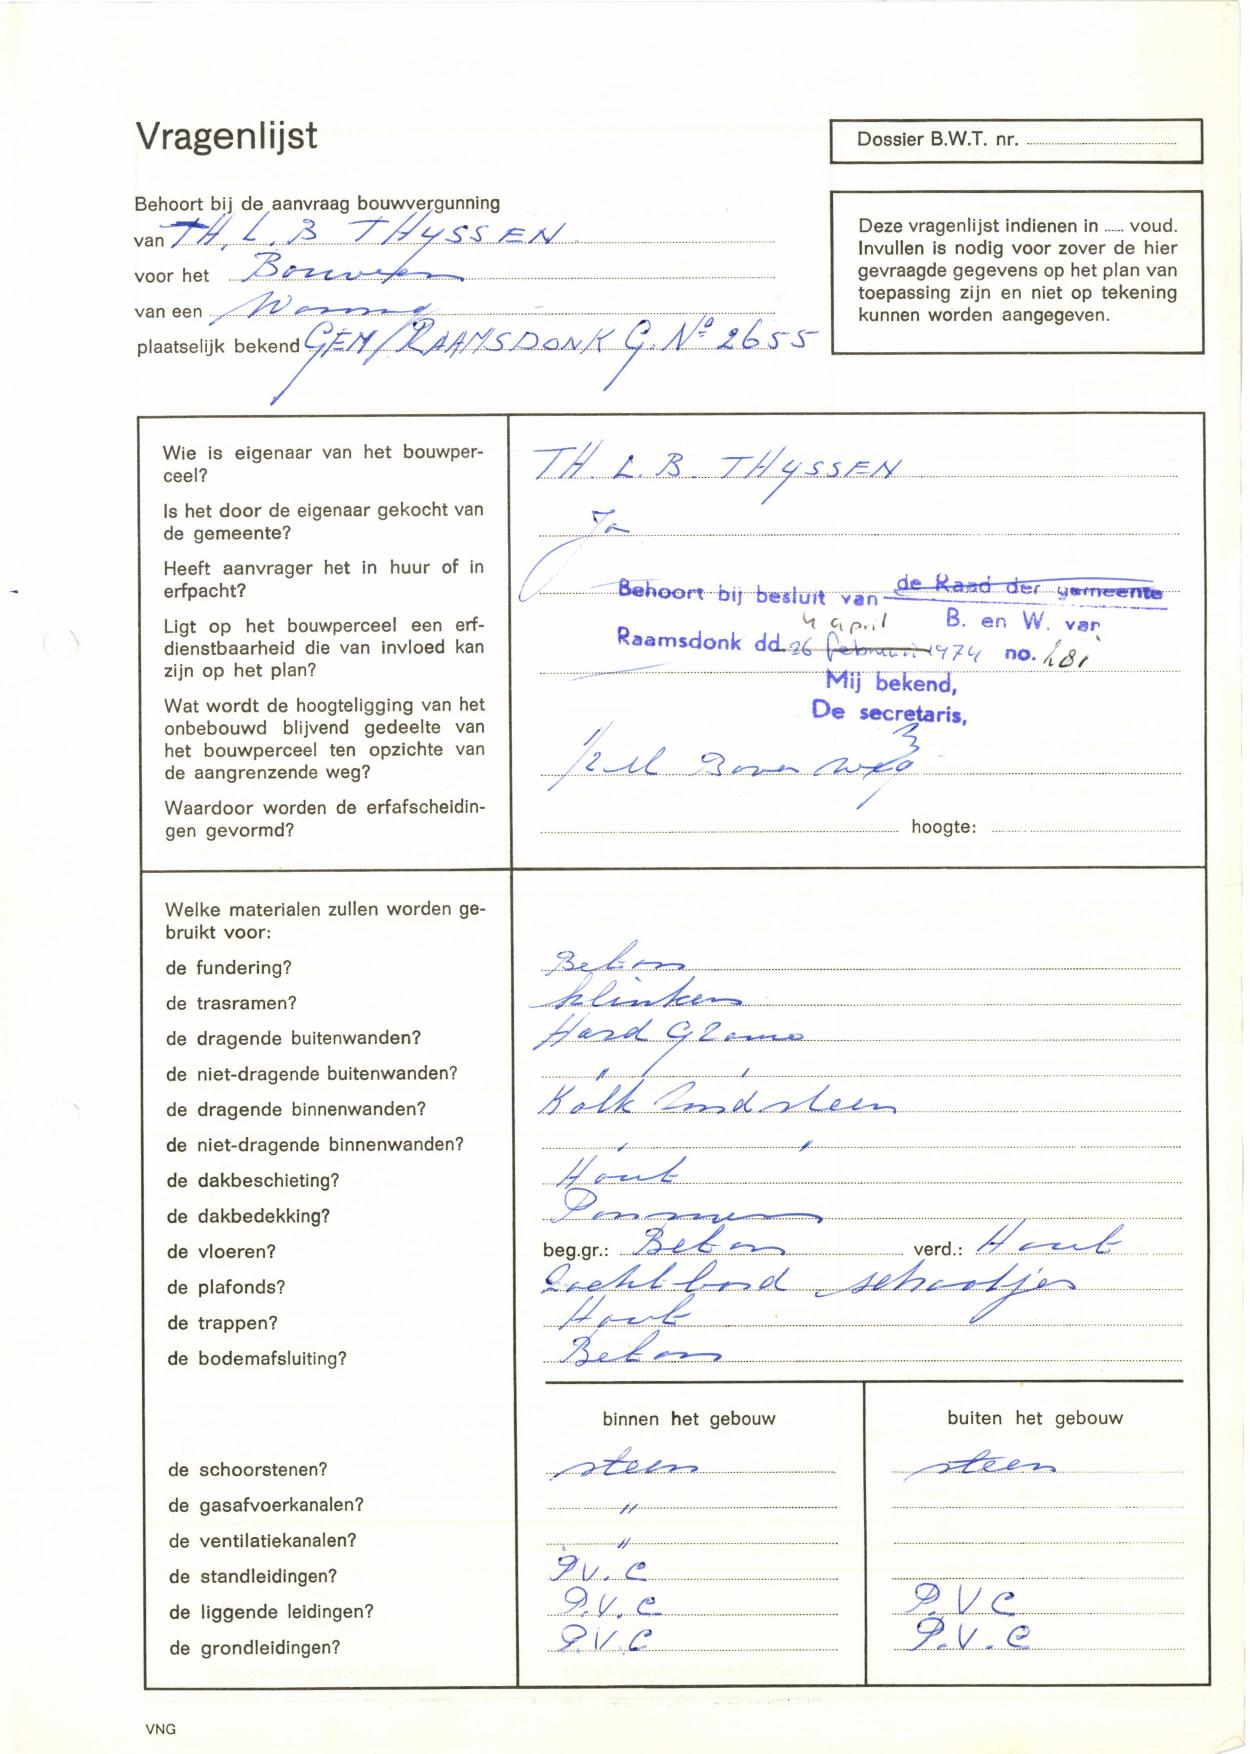 Vragenlijst
Dossier B.W.T. nr.
Behoort bij de aanvraag bouwvergunning
van TH. L. B THYSSEN
voor het Bouwen
van een Woning
plaatselijk bekend GEM/RAAMSDONK G. Nº 2655
Deze vragenlijst indienen in ..... voud.
Invullen is nodig voor zover de hier
gevraagde gegevens op het plan van
toepassing zijn en niet op tekening
kunnen worden aangegeven.
Wie is eigenaar van het bouwper-
ceel?
TH. L. B. THYSSEN
Is het door de eigenaar gekocht van
de gemeente?
Ja
Heeft aanvrager het in huur of in
erfpacht?
Behoort bij besluit van de Raad der gemeente
B. en W. van
4 april
Raamsdonk dd. 26 februari 1974 no.
Mij bekend,
De secretaris,
Ligt op het bouwperceel een erf-
dienstbaarheid die van invloed kan
zijn op het plan?
Wat wordt de hoogteligging van het
onbebouwd blijvend gedeelte van
het bouwperceel ten opzichte van
de aangrenzende weg?
1/2 M Boven weg
Waardoor worden de erfafscheidin-
gen gevormd?
hoogte:
Welke materialen zullen worden ge-
bruikt voor:
de fundering? Beton
de trasramen? klinkers
de dragende buitenwanden? Hard
de niet-dragende buitenwanden? " "
de dragende binnenwanden? Kalk zandsteen
de niet-dragende binnenwanden? " "
de dakbeschieting? Hout
de dakbedekking? Pannen
de vloeren? beg.gr.: Beton verd.: Hout
de plafonds? Zachtbord schootjes
de trappen? Hout
de bodemafsluiting? Beton
binnen het gebouw buiten het gebouw
de schoorstenen? steen steen
de gasafvoerkanalen? "
de ventilatiekanalen? "
de standleidingen? P.V.C
de liggende leidingen? P.V.C P.V C
de grondleidingen? P.V.C P.V.C
VNG